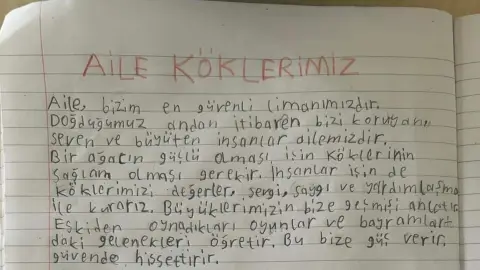 AİLE KÖKLERİMİZ
Aile, bizim en güvenli limanımızdır.
Doğduğumuz andan itibaren bizi koruyan,
seven ve büyüten insanlar ailemizdir.
Bir ağacın güçlü olması için köklerinin
sağlam olması gerekir. İnsanlar için de
köklerimizi değerler, sevgi, saygı ve yardımlaşma
ile kurarız. Büyüklerimizin bize geçmişi anlatır.
Eskiden oynadıkları oyunlar ve bayramlar
daki gelenekleri öğretir. Bu bize güç verir,
güvende hissettirir.